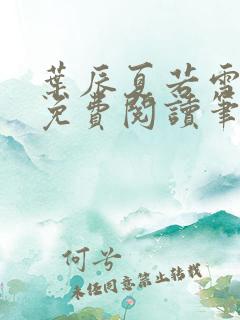 葉辰夏若雪
免費閱讀筆
何兮
未經同意禁止轉載